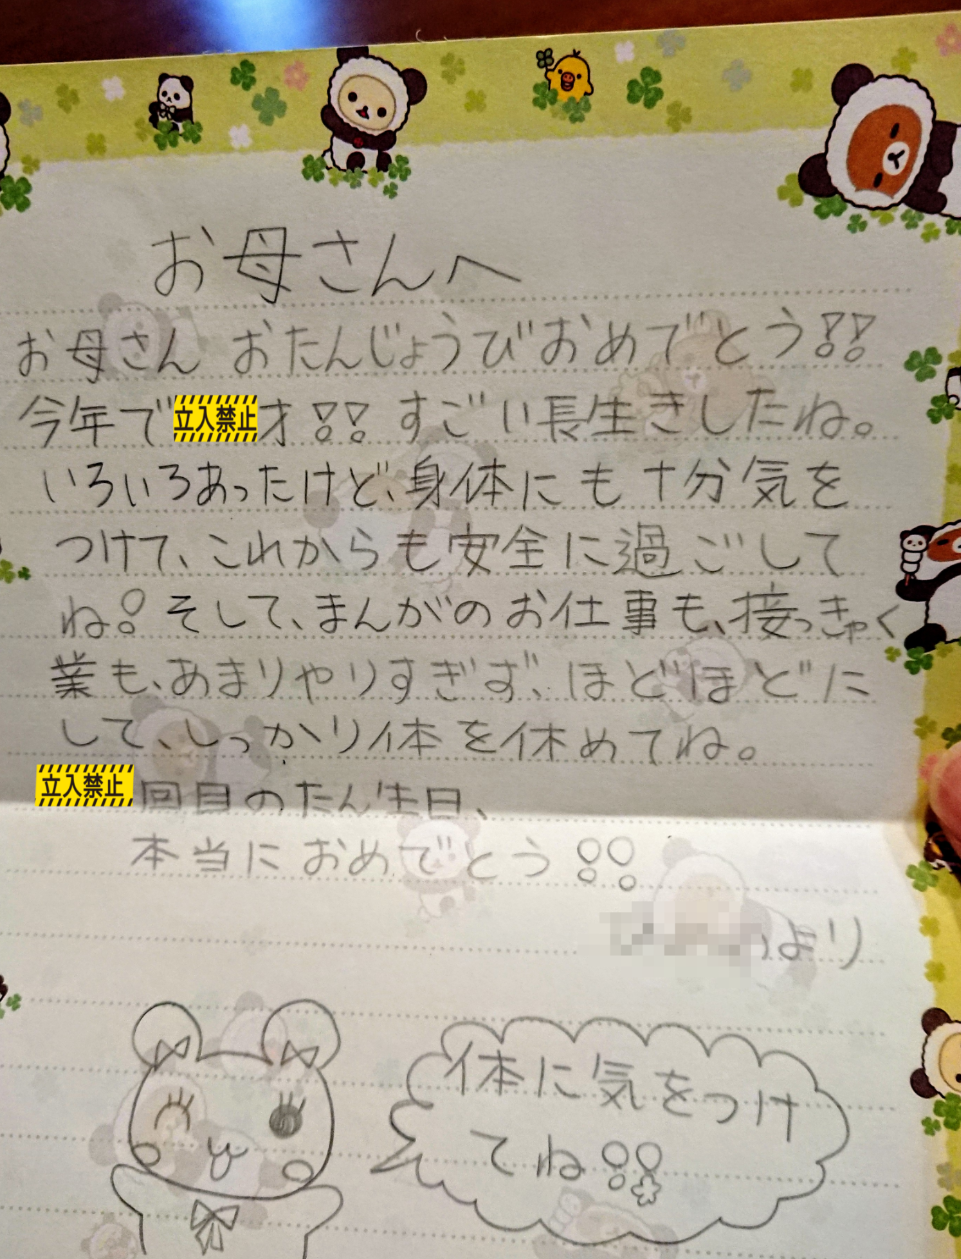 お母さんへ
お母さん おたんじょうびおめでとう!!
今年で立入禁止才!!すごい長生きしたね。
いろいろあったけど、身体にも十分気を
つけて、これからも安全に過ごして
ね!そして、まんがのお仕事も、接っきゃく
業も、あまりやりすぎず、ほどほどに
して、しっかり体を休めてね。
立入禁止回目のたん生日、
本当におめでとう!!
より
体に気をつけ
てね!!